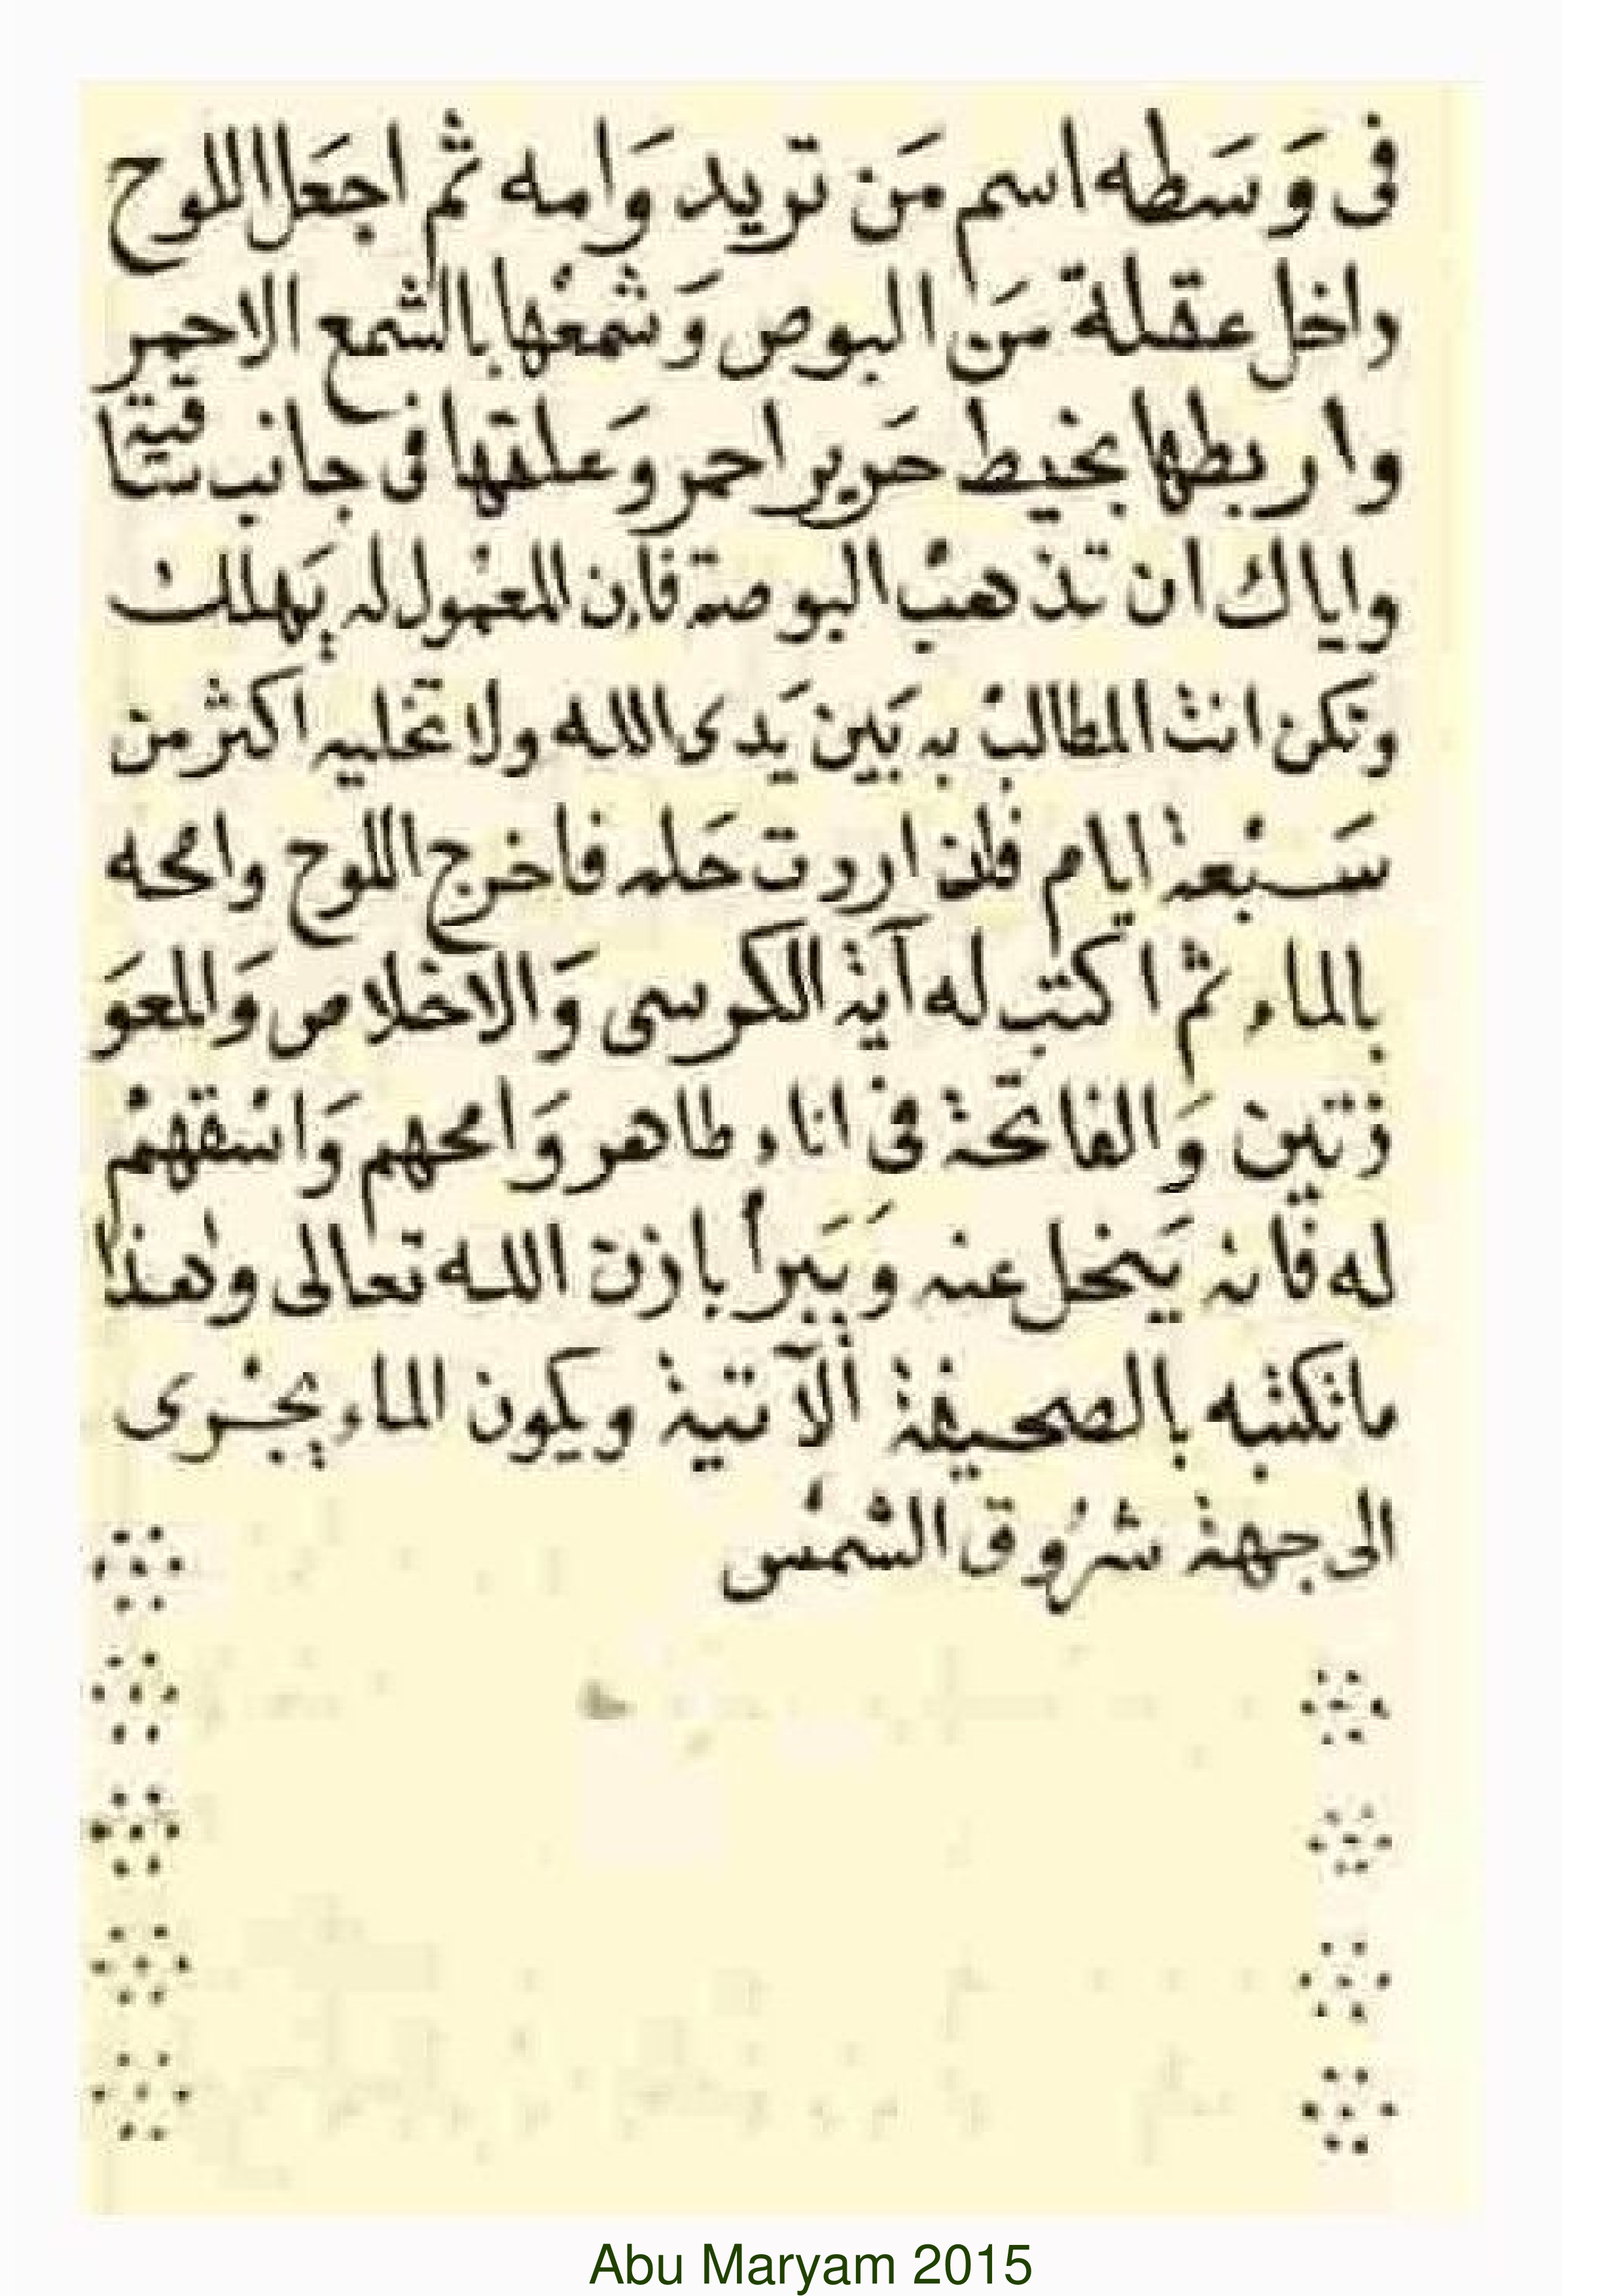 فى وَسَطه اسم مَن تريد وَامه ثم اجعَل اللوح
داخل عقلة مَن البوص وَشمعْها بالشمع الاحمر
واربطها بخيط حَرير احمر وعَلقها فى جانب ساقية
واياك ان تذهبْ البوصة فإن المعمْول له يَهلك
وتكن انتْ المطالبْ به بَين يَدى الله ولا تخليه اكثر من
سَبْعة ايام فان اردت حَله فاخرج اللوح وامحه
بالماء ثم اكتب له آية الكرسى وَالاخلاص وَالمعوَ
ذتين وَالفاتحة فى اناء طاهر وَامحهم وَاسْقهمْ
له فانه يَنحل عنه وَيَبرأ باذن الله تعالى وهذا
ما تكتبه بالصحيفة ألآتية ويكون الماء يجْرى
الى جهة شرُوق الشمسْ
Abu Maryam 2015